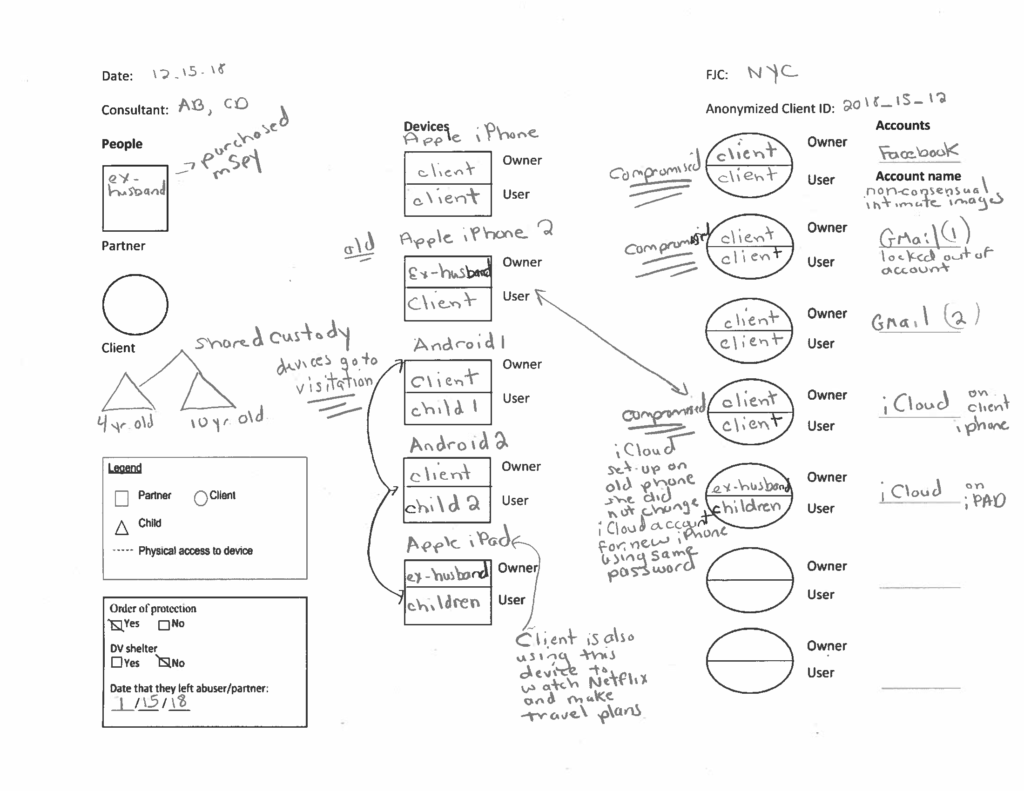 Date: 12.15.18
FJC: NYC
Consultant: AB, CD
Anonymized Client ID: 2018_15_12
People
→ purchased
mSpy
ex-
husband
Partner
Client
shared custody
devices go to
visitation
4 yr. old
10 yr. old
Legend
Partner
Client
Child
Physical access to device
Order of protection
Yes
No
DV shelter
Yes
No
Date that they left abuser/partner:
1/15/18
Devices
Apple iPhone
client
Owner
client
User
old
Apple iPhone 2
Ex-husband
Owner
Client
User
Android 1
Client
Owner
child 1
User
Android 2
client
Owner
child 2
User
Apple iPad
ex-husband
Owner
children
User
Client is also
using this
device to
watch Netflix
and make
travel plans
Accounts
compromised
client
Owner
Facebook
client
User
Account name
non-consensual
intimate images
compromised
client
Owner
GMail (1)
client
User
locked out of
account
client
Owner
GMail (2)
client
User
compromised
client
Owner
iCloud on
client
iphone
client
User
iCloud
set-up on
old phone
she did
not change
iCloud account
for new iPhone
using same
password
ex-husband
Owner
iCloud on
iPAD
children
User
Owner
User
Owner
User